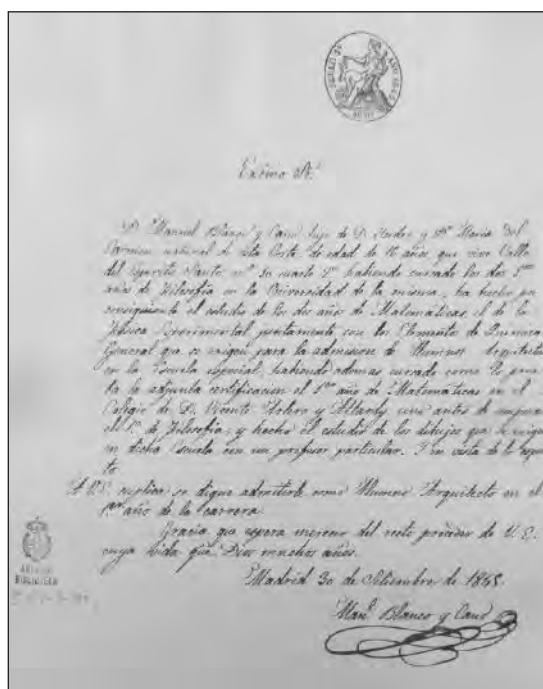 Excmo Sr.
D. Manuel Blanco y Cano hijo de D. Isidro y Dª Maria del
Carmen natural de esta Corte de edad de 16 años, que vive Calle
del Espiritu Santo nº 30 cuarto 2º habiendo cursado los dos 1ros
años de Filosofia en la Universidad de la misma, ha hecho por
consiguiente el estudio de los dos años de Matematicas, el de la
Fisica Esperimental juntamente con los Elementos de Quimica
General que se exigen para la admision de Alumnos Arquitectos
en la Escuela especial, habiendo ademas cursado como lo prue
ba la adjunta certificacion el 1er año de Matematicas en el
Colegio de D. Vicente y antes de empezar
el 1º de Filosofia; y hecho el estudio de los dibujos que se exigen
en dicha Escuela con un profesor particular. Y en vista de lo espues
to.
A V.E. suplica se digne admitirle como Alumno Arquitecto en el
1er año de la carrera.
Gracia que espera merecer del recto proceder de V. E.
cuya vida gue. Dios muchos años.
Madrid 30 de Setiembre de 1848.
Manl Blanco y Cano
BIBLIOTECA